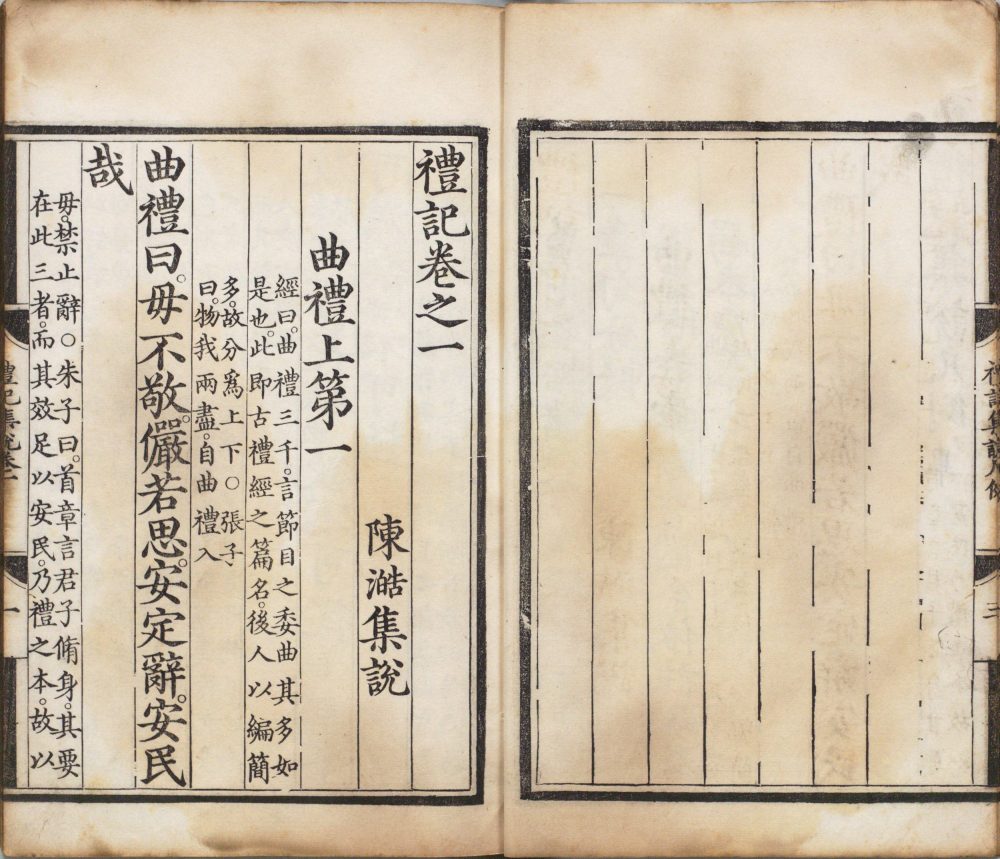 禮記集說凡例
三
禮記卷之一
陳澔集說
曲禮上第一
經曰。曲禮三千。言節目之委曲其多如
是也。此即古禮經之篇名。後人以編簡
多。故分爲上下○張子
曰。物我兩盡。自曲禮入
曲禮曰。毋不敬。儼若思。安定辭。安民
哉
毋。禁止辭○朱子曰。首章言君子脩身。其要
在此三者。而其效足以安民。乃禮之本。故以
禮記集說卷一
一